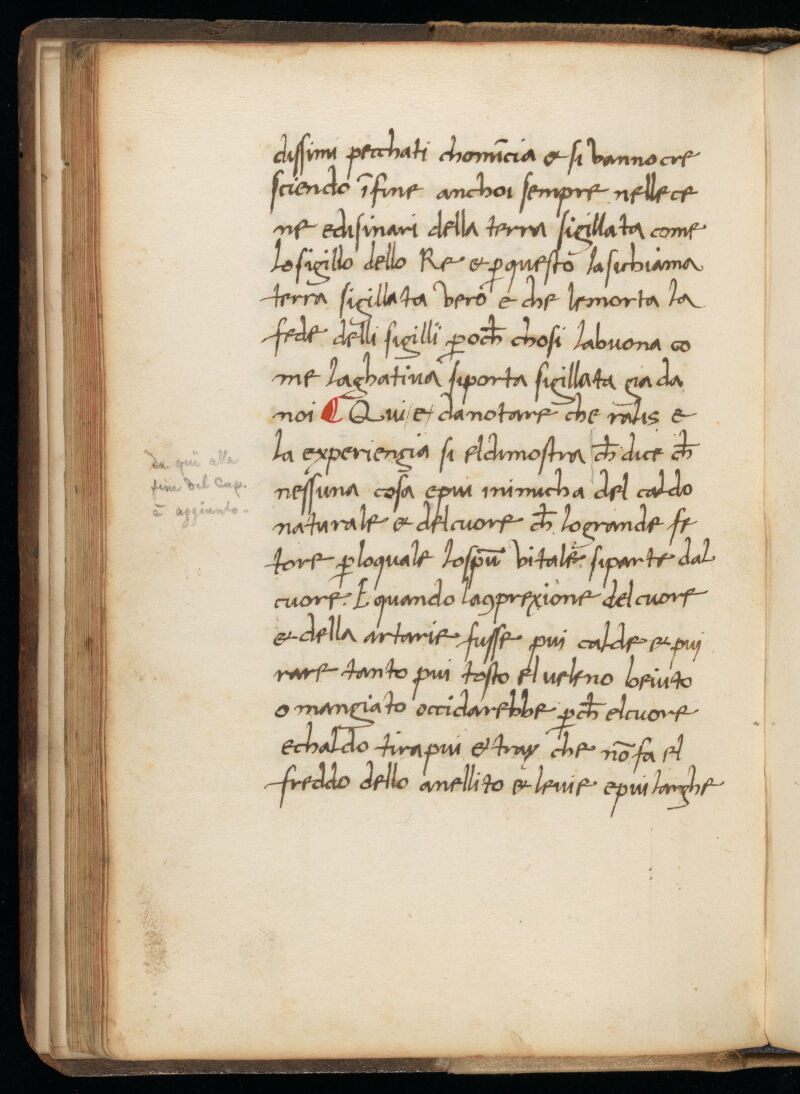 dissimi pecchati chomīcia & si vanno cre
sciendo īfine anchoi sempre nelle ce
ne edisinari della terra sigillata come
lo sigillo dello Re & ꝑ questo la sichiama
terra sigillata vero e che le morta la
fede delli sigilli ꝑoch̄ chosi la buona co
me laghativa siporta sigillata gia da
noi ¶ Qui e da notare che e
la experiengia si el dimostra ch̄ dice ch̄
nessuna cosa epui inimicha del caldo
naturale & del cuore ch̄ lo grande fe
tore ꝑ loquale lo spū vitale siparte dal
cuore. E quando la ꝯprexione del cuore
& della artarie fusse pui calde & pui
rare tanto pui tosto el veleno beiuto
o mangiato occidarebbe ꝑch̄ el cuore
echaldo tira pui & tray che nō fa el
freddo dello anellito & le vie epui larghe
da qui alla
fine del Cap.
è aggiunto.